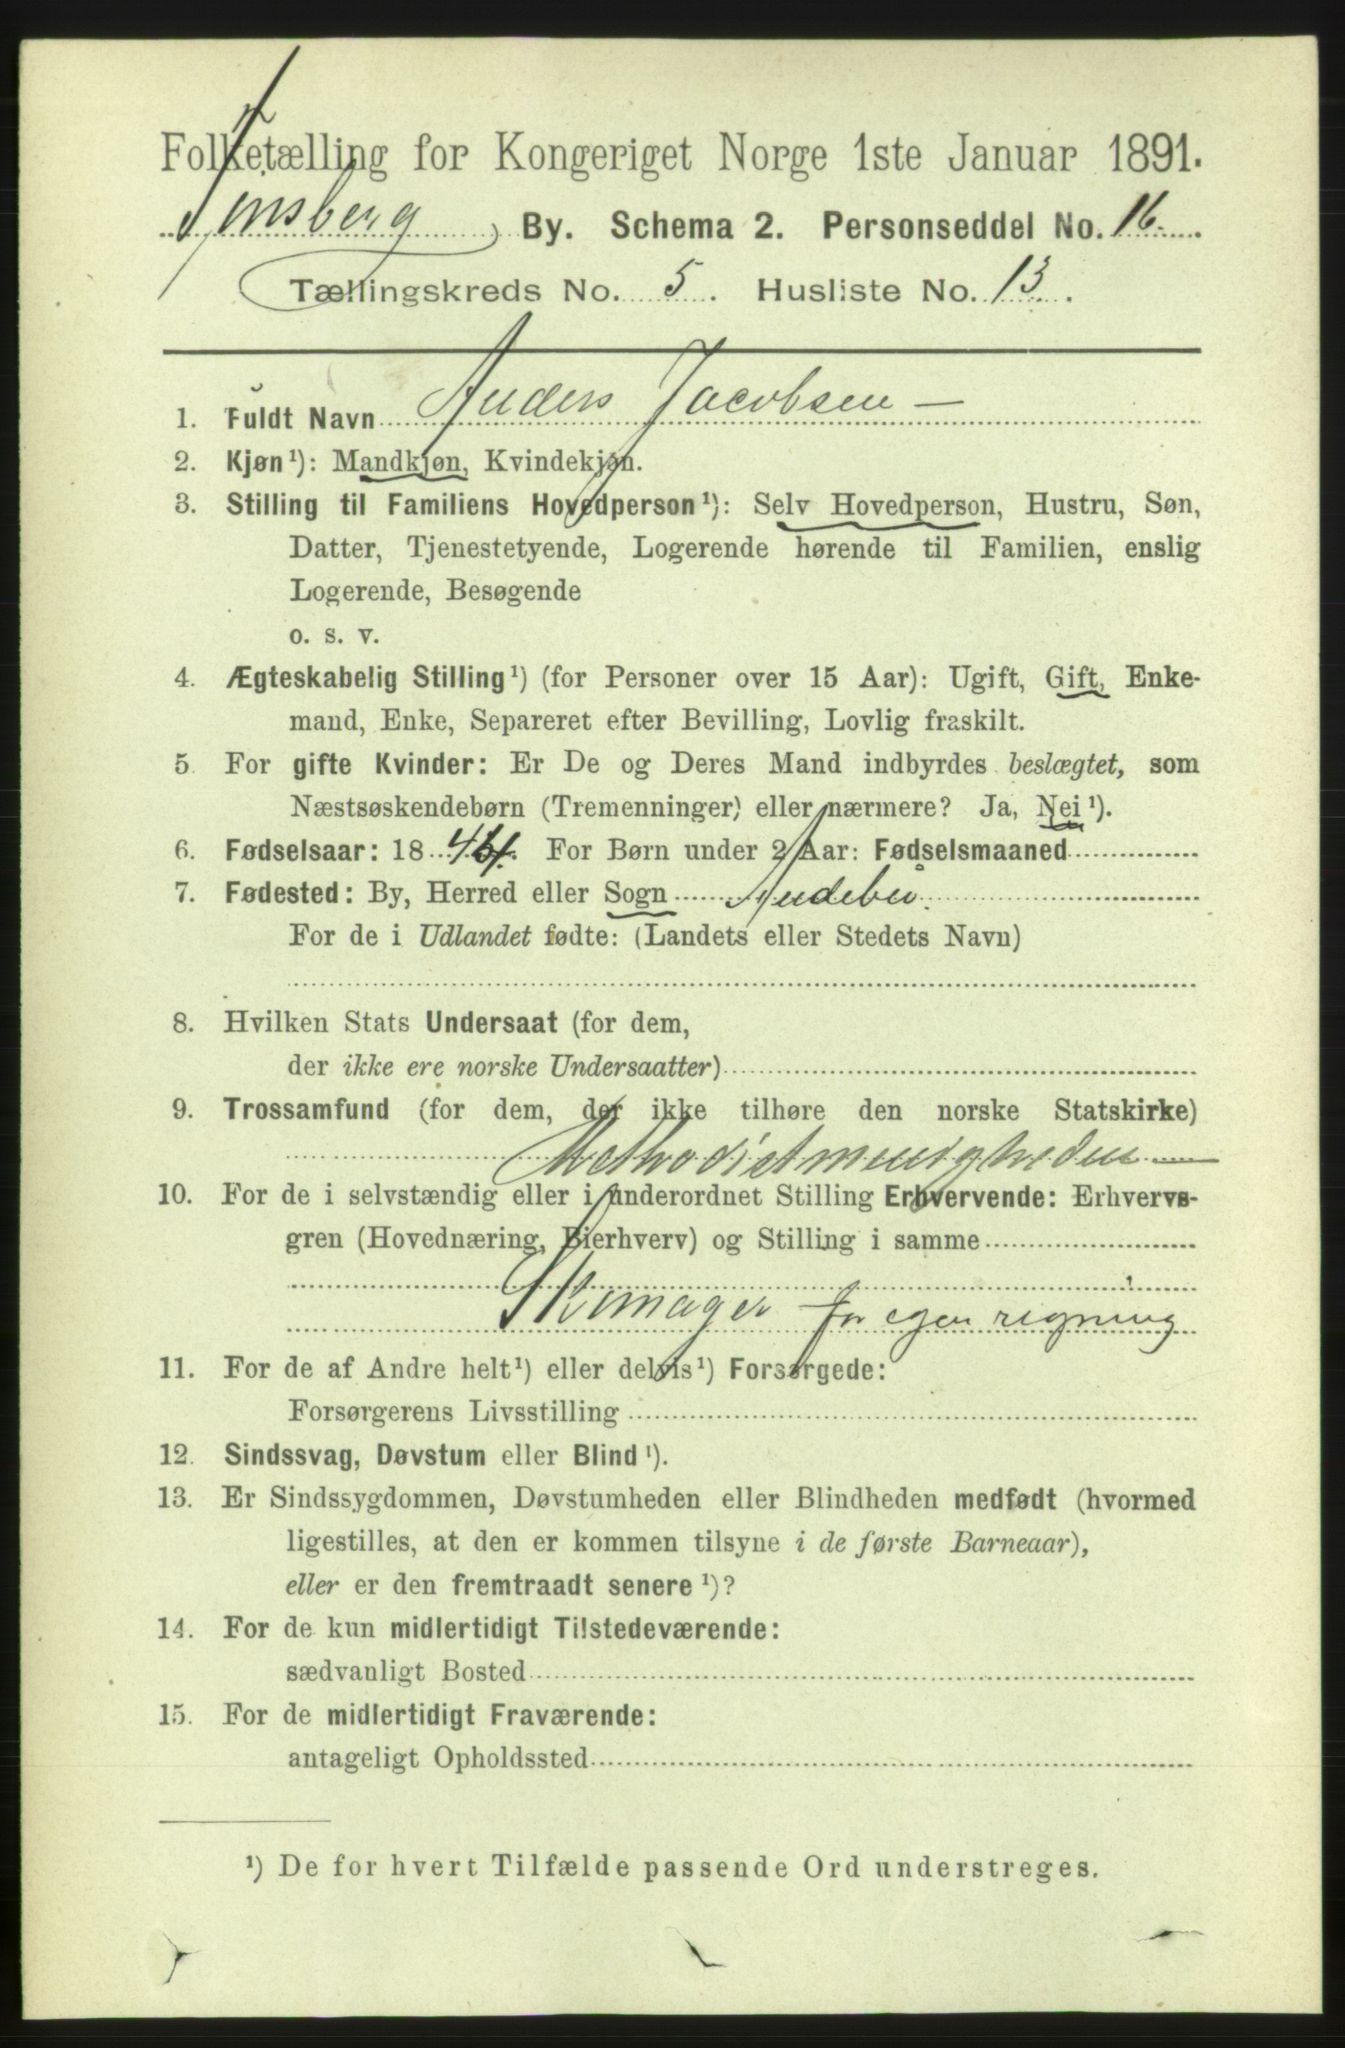 Folketælling for Kongeriget Norge 1ste Januar 1891.
Tønsberg By. Schema 2. Personseddel No. 16.
Tællingskreds No. 5. Husliste No. 13.
1. Fuldt Navn Anders Jacobsen —
2. Kjøn¹): Mandkjøn, Kvindekjøn.
3. Stilling til Familiens Hovedperson¹): Selv Hovedperson, Hustru, Søn,
Datter, Tjenestetyende, Logerende hørende til Familien, enslig
Logerende, Besøgende
o. s. v.
4. Ægteskabelig Stilling¹) (for Personer over 15 Aar): Ugift, Gift, Enke-
mand, Enke, Separeret efter Bevilling, Lovlig fraskilt.
5. For gifte Kvinder: Er De og Deres Mand indbyrdes beslægtet, som
Næstsøskendebørn (Tremenninger) eller nærmere? Ja, Nei¹).
6. Fødselsaar: 18 For Børn under 2 Aar: Fødselsmaaned
7. Fødested: By, Herred eller Sogn Andebu.
For de i Udlandet fødte: (Landets eller Stedets Navn)
8. Hvilken Stats Undersaat (for dem,
der ikke ere norske Undersaatter)
9. Trossamfund (for dem, der ikke tilhøre den norske Statskirke)
Methodistmenigheden —
10. For de i selvstændig eller i underordnet Stilling Erhvervende: Erhvervs-
gren (Hovednæring, Bierhverv) og Stilling i samme
Skomager for egen regning
11. For de af Andre helt¹) eller delvis¹) Forsørgede:
Forsørgerens Livsstilling
12. Sindssvag, Døvstum eller Blind¹).
13. Er Sindssygdommen, Døvstumheden eller Blindheden medfødt (hvormed
ligestilles, at den er kommen tilsyne i de første Barneaar),
eller er den fremtraadt senere¹)?
14. For de kun midlertidigt Tilstedeværende:
sædvanligt Bosted
15. For de midlertidigt Fraværende:
antageligt Opholdssted
¹) De for hvert Tilfælde passende Ord understreges.